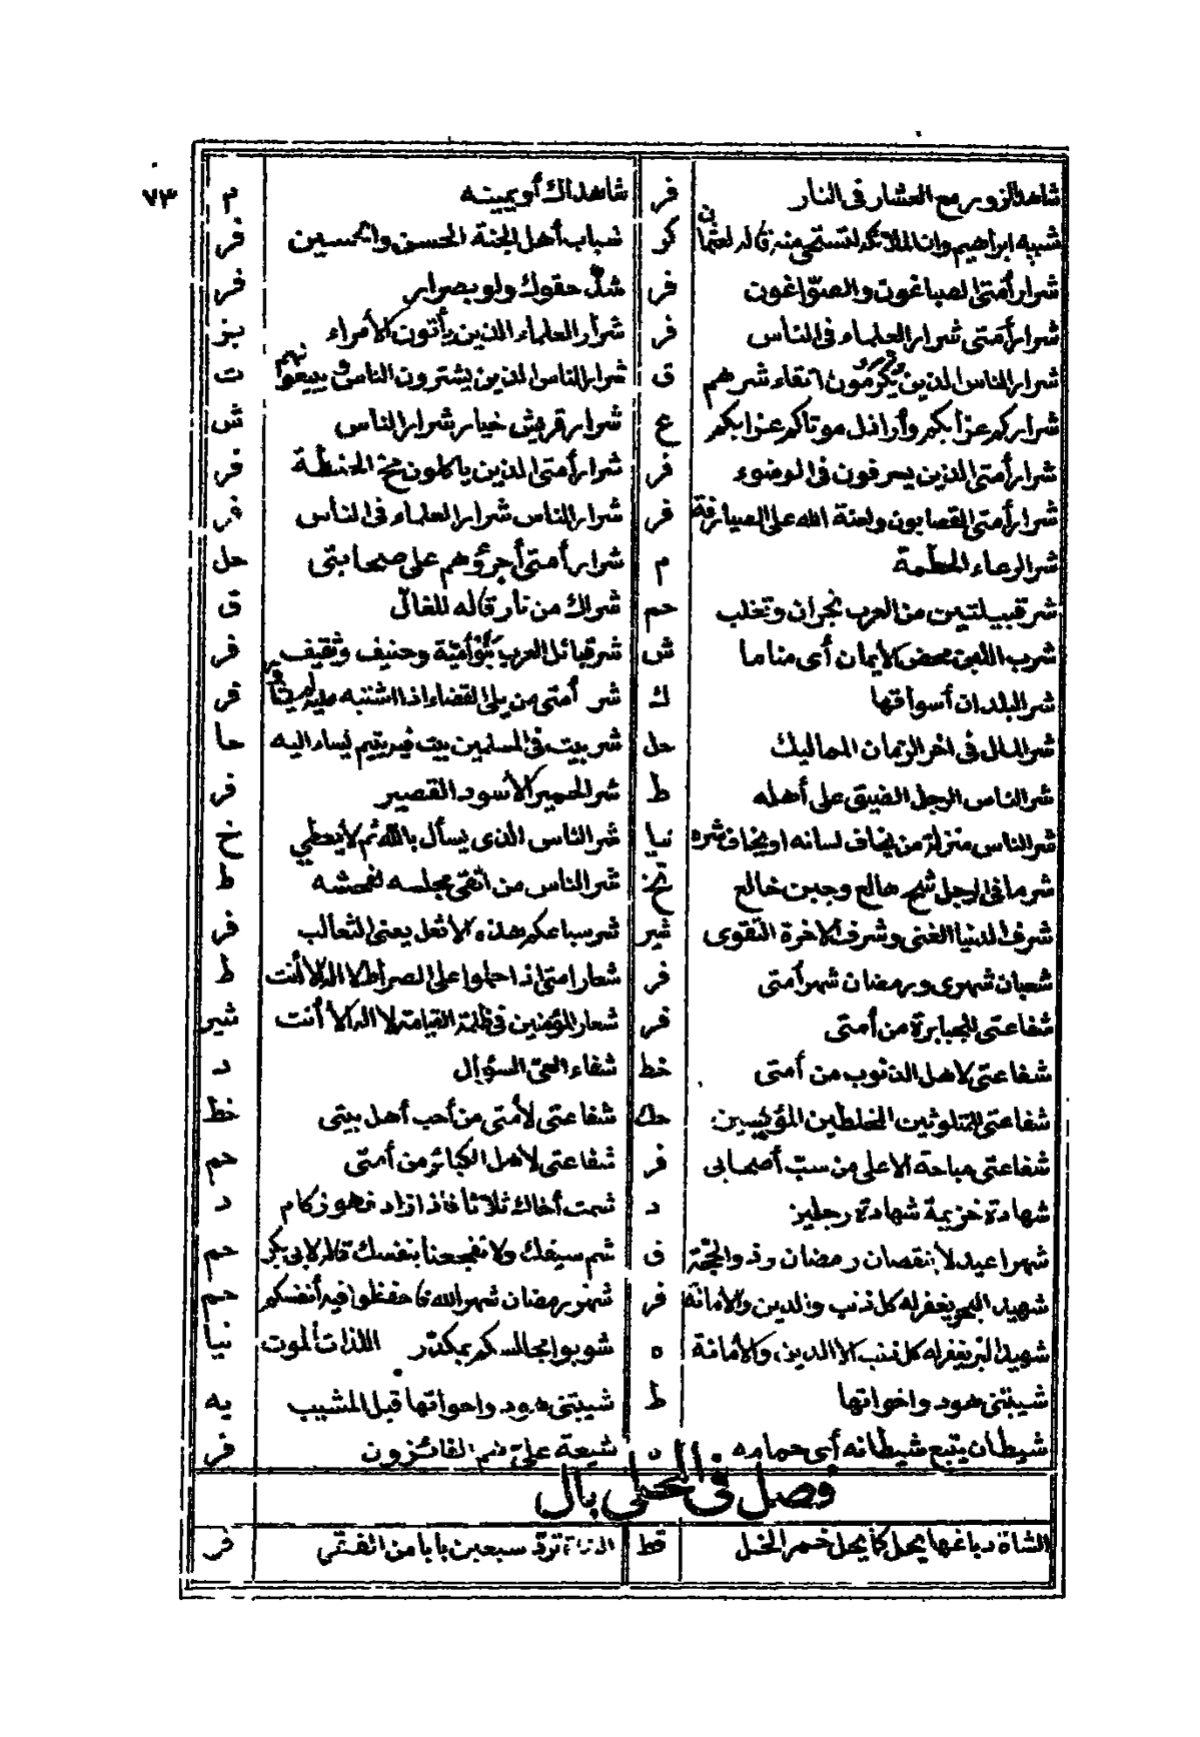 ٧٣
شاهد الزور مع العشار فى النار فر شاهداك أو يمينه م
شبيه ابراهيم وان الملائكة لتستحى منه قاله لعثمان كر شباب أهل الجنة الحسن والحسين فر
شرار أمتى الصباغون والصواغون فر شد حقوك ولو بصرار فر
شرار أمتى شرار العلماء فى الناس فر شرار العلماء الذين يأتون الأمراء بز
شرار الناس الذين يكرمون اتقاء شرهم ق شرار الناس الذين يشترون الناس ويبيعونهم ت
شراركم عزابكم وأراذل موتاكم عزابكم ع شرار قريش خيار شرار الناس ش
شرار أمتى الذين يسرفون فى الوضوء فر شرار أمتى الذين ياكلون مخ الحنطة فر
شرار أمتى القصابون ولعنة الله على الصيارفة فر شرار الناس شرار العلماء فى الناس فر
شر الرعاء الحطمة م شرار أمتى أجرؤهم على صحابتى حل
شر قبيلتين من العرب نجران وتغلب حم شراك من نار قاله للغال ق
شرب اللبن محض الايمان أى مناما ش شر قبائل العرب بنو أمية وحنيف وثقيف فر
شر البلدان أسواقها ك شر أمتى من يلى القضاء اذا اشتبه عليه لم يشاور فر
شر المال فى اخر الزمان المماليك حل شر بيت فى المسلمين بيت فيه يتيم يساء اليه حا
شر الناس الرجل الضيق على أهله ط شر الحمير الأسود القصير فر
شر الناس منزلة من يخاف لسانه او يخاف شره نيا شر الناس الذى يسأل بالله ثم لا يعطى خ
شر ما فى الرجل شح هالع وجبن خالع تخ شر الناس من اتقى مجلسه لفحشه ط
شرف الدنيا الغنى وشرف الاخرة التقوى شير شر سباعكم هذه الاثعل يعنى الثعالب فر
شعبان شهرى ورمضان شهر أمتى فر شعار امتى اذا حملوا على الصراط لا اله الا أنت ط
شفاعتى للجبابرة من أمتى فر شعار المؤمنين فى ظلمة القيامة لا اله الا أنت شير
شفاعتى لاهل الذنوب من أمتى خط شفاء العى السؤال د
شفاعتى للمتلوثين المخلطين حك شفاعتى لأمتى من أحب أهل بيتى خط
شفاعتى مباحة الا على من سب أصحابى فر شفاعتى لاهل الكبائر من أمتى حم
شهادة خزيمة شهادة رجلين د شمت أخاك ثلاثا فاذا زاد فهو زكام د
شهرا عيد لا ينقصان رمضان وذو الحجة ق شم سيفك ولا تفجعنا بنفسك قاله لابى بكر حم
شهيد البحر يغفر له كل ذنب والدين والامانة فر شهر رمضان شهر الله فاحفظوا فيه أنفسكم حم
شهيد البر يغفر له كل ذنب الا الدين والأمانة ه شوبوا مجالسكم بمكدر اللذات الموت نيا
شيبتنى هود واخواتها ط شيبتنى هود واخواتها قبل المشيب يه
شيطان يتبع شيطانه أى حمامه ه شيعة على هم الفائزون فر
فصل فى المحلى بال
الشاة دباغها يحل كما يحل خمر الخل قط الشاة ترد سبعين بابا من الفقر فر